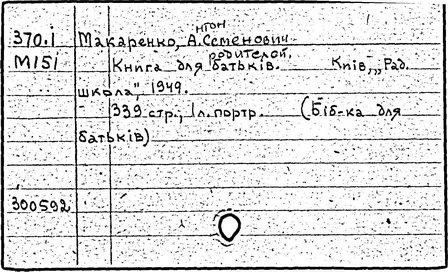 нтон
370.1 Макаренко, А.Семенович
родителей.
М151 Книга для батьків. Київ, „Рад.
школа", 1949.
339 стр., 1л.портр. (Біб-ка для
батьків)
300592